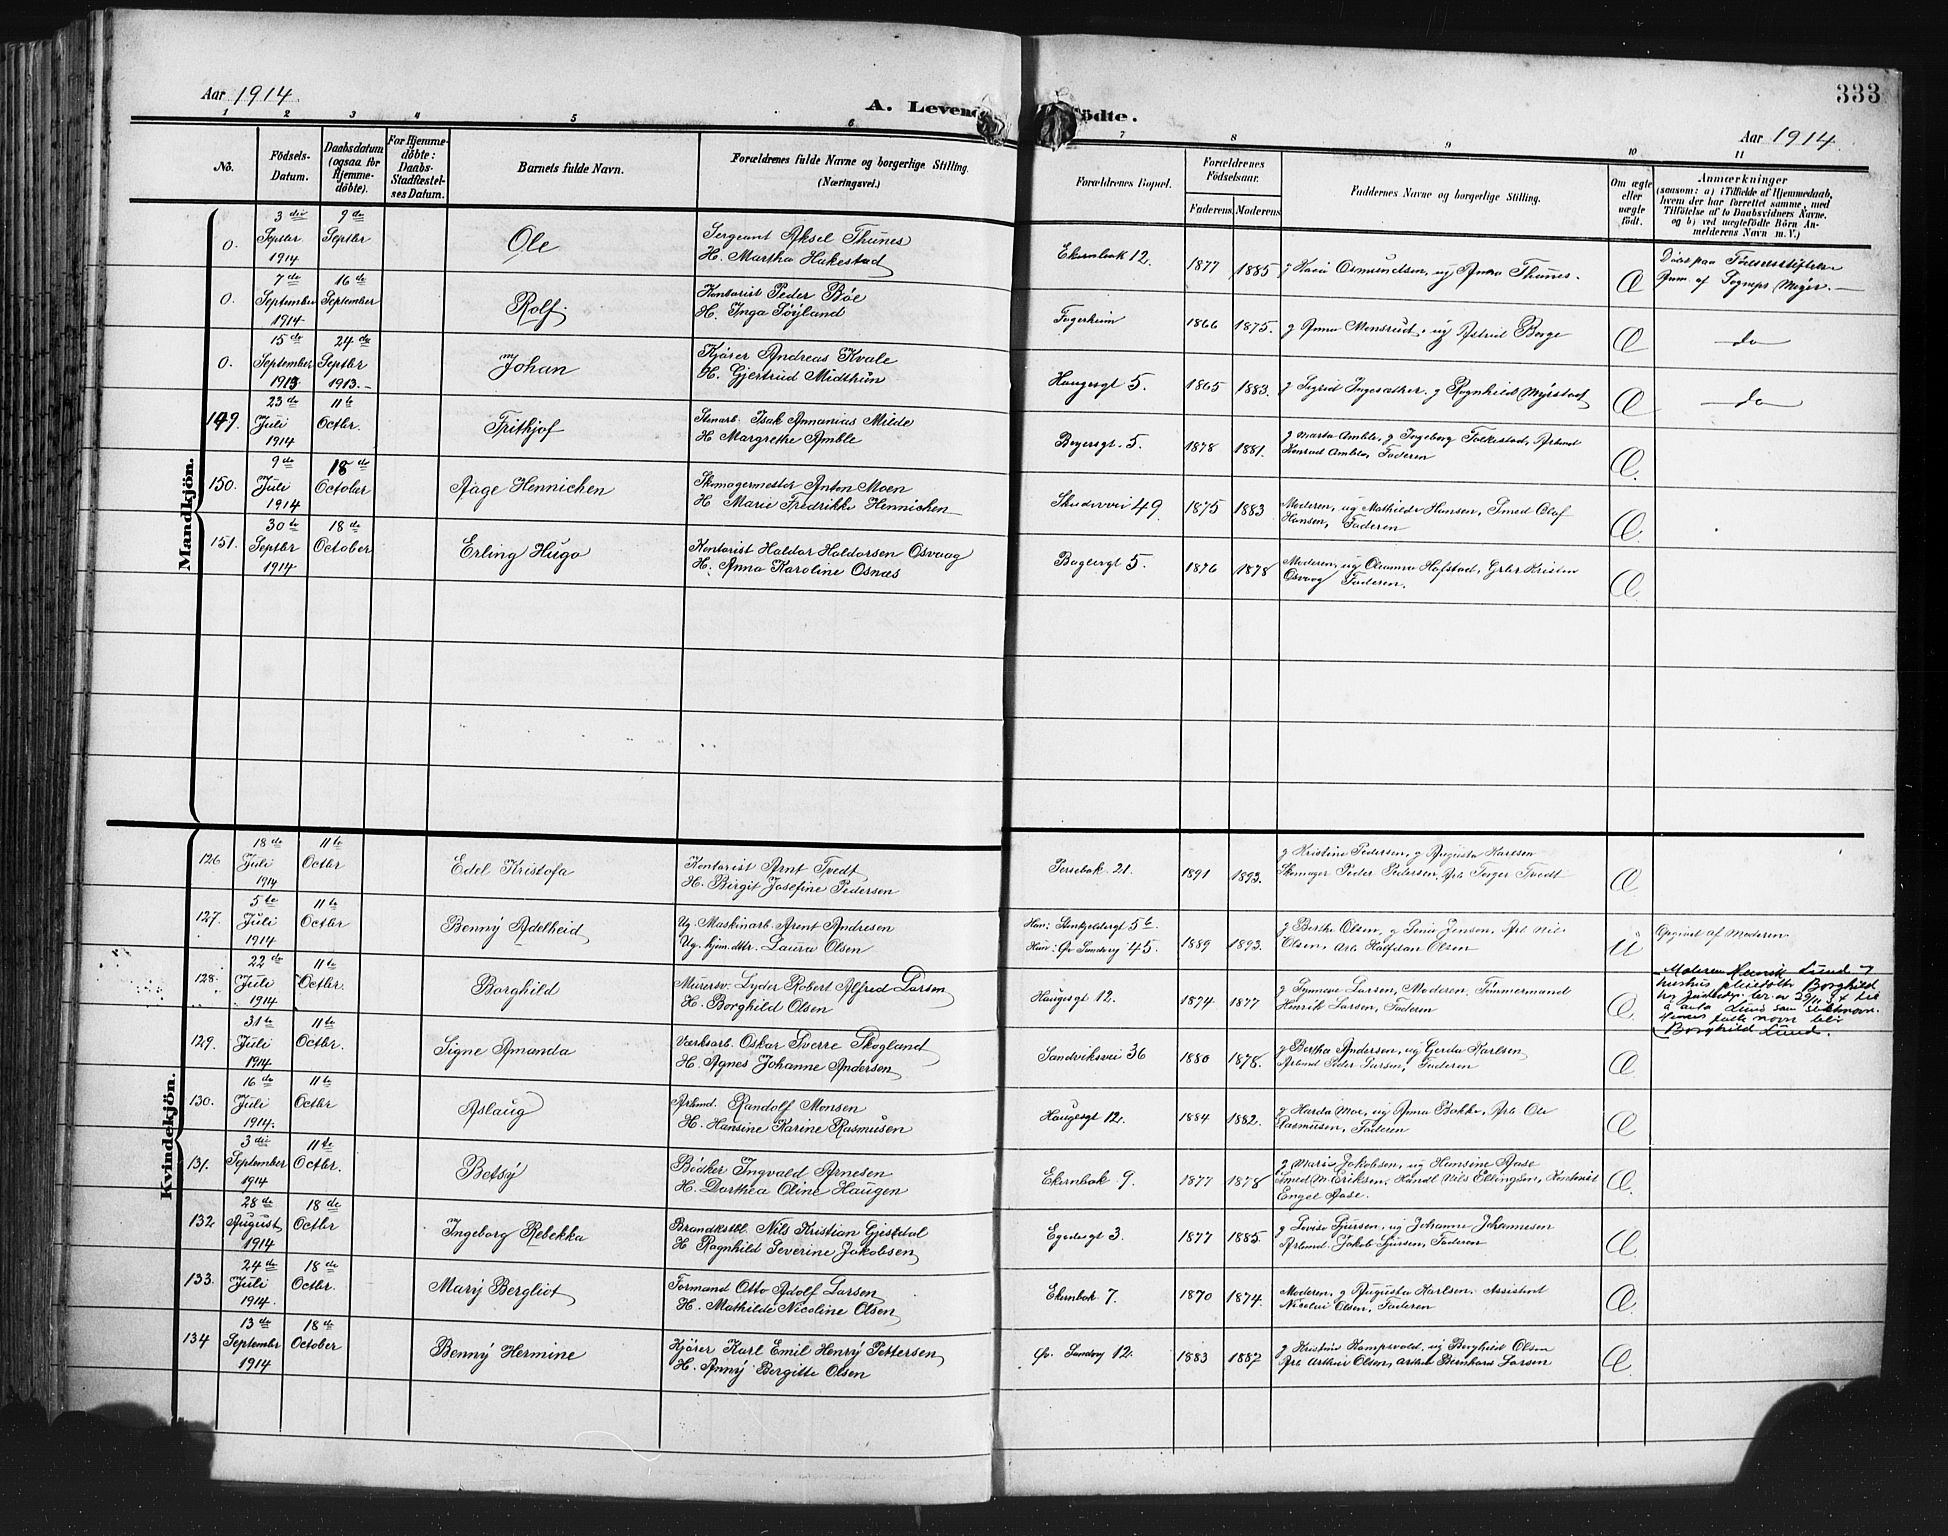 Aar 1914.
A. Levende Födte.
333
Aar 1914.
1 2 3 4 5 6 7 8 9 10 11
No.
Födsels-Datum.
Daabsdatum (ogsaa for Hjemme-döbte).
For Hjemme-döbte: Daabs-Stadfæstel-ses Datum.
Barnets fulde Navn.
Forældrenes fulde Navne og borgerlige Stilling.
(Næringsvei.)
Forældrenes Bopæl.
Forældrenes Födselsaar.
Faderens Moderens
Faddernes Navne og borgerlige Stilling.
Om ægte eller uægte födt.
Anmærkninger
(saasom: a) i Tilfælde af Hjemmedaab, hvem der har forrettet samme, med Tilföielse af to Daabsvidners Navne. og b) ved uægtefödte Börn An-melderens Navn m. V.)
Mandkjön.
0. 3 die Septbr 1914 9 de Septbr Ole Sergeant Aksel Thunes
H. Martha Hakestad Ekernbak 12. 1877 1885 g Osmundsen, ug Anna Thunes. Æ Døbt paa Födselsstiftelsen
af Sognepr. Meyer.
0. 7 de September 1914 16 de September Rolf Kontorist Peder Bøe
H. Inga Søyland Fagerheim 1866 1875. g Anna Monsrud, ug Astrid Borge Æ do
0. 15 de September 1913 24 de Septbr 1913. Johan Kjører Andreas Kvale
H. Gjertrud Midthun Haugesgt 5. 1865 1883. g Sigrid Ingesæther, g Ragnhild Myrstad Æ do
149. 23 de Juli 1914 11 te Octbr. Frithjof Stenarb. Isak Annanias Milde
H Margrethe Amble Beyersgt. 5. 1878 1881. g Marta Amble, g Ingeborg Folkestad, Arbmd
Konrad Amble, Faderen Æ
150. 9 de Juli 1914 18 de October Aage Hennichen Skomagermester Anton Moen
H Marie Fredrikke Hennichen Skudevvei 49. 1875 1883 Moderen, ug Mathilde Hansen, Smed Olaf
Hansen, Faderen Æ
151. 30 te Septbr 1914 18 de October Erling Hugo Kontorist Haldor Haldorsen Osvaag
H. Anna Karoline Osnæs Baglergt 5. 1876 1878 Moderen, ug Oleanna Hofstad, Grbr. Kristen
Osvaag Faderen. Æ
Kvindekjön.
126 18 de Juli 1914 11 te Octbr Edel Kristofa Kontorist Arnt Tvedt
H. Birgit Josefine Pedersen Persebak. 21. 1891 1893. g Kristine Pedersen, g Augusta Karlsen
Skomager Peder Pedersen, Arb Torger Tvedt Æ
127. 5 te Juli 1914 11 te Octbr Benny Adelheid Ug. Maskinarb. Arent Andresen
Ug. hjem. dttr. Laura Olsen Han: Stenkjeldergt 5 b
Hun: Øv. Sandvg 45. 1889 1893. g Berthe Olsen, g Lina Jensen, Arb Nils
Olsen, Arb. Halfdan Olsen U Opgivet af Moderen
128. 22 de Juli 1914 11 te Octbr. Borghild Murersv. Lyder Robert Alfred Larsen
H. Borghild Olsen Haugesgt 12. 1874 1877 g Synneve Larsen, Moderen, Tömmermand
Henrik Larsen, Faderen Æ Henrik Lund og
hustrus pleiedatter Borghild
å anta Lund som slektsnavn.
Hennes fulle navn blir
Borghild Lund.
129. 31 te Juli 1914 11 te Octbr. Signe Amanda Værksarb. Oskar Sverre Skogland
H. Agnes Johanne Andersen Sandviksvei 36 1880 1878. g Bertha Andersen, ug Gerda Karlsen
Arbmd Peder Larsen, Faderen Æ
130. 16 de Juli 1914. 11 te Octbr Aslaug Arbmd. Randolf Monsen
H. Hansine Karine Rasmusen Haugesgt 12. 1884 1882. g Harda Moe, ug Anna Bakke, Arb Ole
Rasmusen, Faderen Æ
131. 3 die September 1914 11 te Octbr. Betsy Bödker Ingvald Arnesen
H. Dorthea Oline Haugen Ekernbak 9. 1877 1878 g Marie Jakobsen, ug Hansine Aase
Smed M. Eriksen, Handl Nils Ellingsen, Kontorist
Engel Aase. Æ
132 28 de August 1914 18 de Octbr Ingeborg Rebekka Brandkstbl. Nils Kristian Gjesdal
H Ragnhild Severine Jakobsen Egedesgt 3. 1877 1885. g Lovise Sjursen, ug Johanne Johannesen
Arbmd. Jakob Sjursen, Faderen Æ
133. 24 de Juli 1914. 18 de Octbr. Mary Bergliot Formand Otto Adolf Larsen
H. Mathilde Nicoline Olsen Ekernbak 7. 1870 1874. Moderen, g Augusta Karlsen. Assistent
Nicolai Olsen, Faderen Æ
134 13 de September 1914 18 de October Benny Hermine Kjører Karl Emil Henry Pettersen
H. Anny Bergitte Olsen Øv. Sandvg 12. 1883 1887 g Kristine Kampevold, ug Borghild Olsen
Arb Arthur Olsen, Arbm Bernhard Larsen Æ